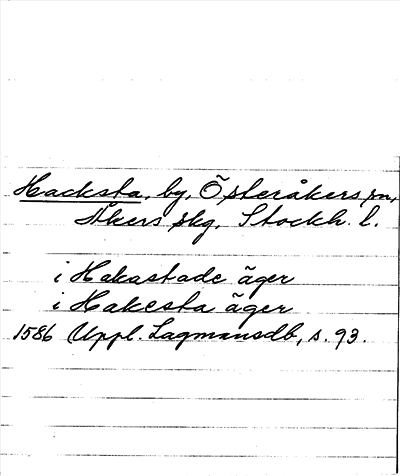 Hacksta, by, Österåkers sn,
Åkers skg, Stockh. l.
i Hakastade äger
i Hakesta äger
1586 Uppl. Lagmansdb, s. 93.